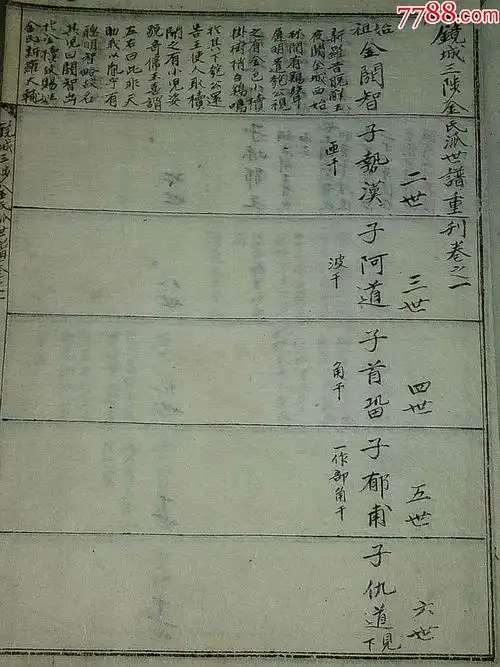 7788.com
鏡城二陟金氏派世譜重刊卷之一
始祖金閼智
新羅昔脫解王
夜聞金城西始
林間有鷄聲
質明遣瓠公視
之有金色小櫝
掛樹梢白鷄鳴
於其下瓠公還
告王使人取櫝
開之有小兒姿
貌奇偉王喜謂
左右曰此非天
助我以胤乎
聰明智略故名
閼智出
金氏新羅
二世
子勢漢
三世
子阿道
波干
四世
子首留
角干
五世
子郁甫
一作部角干
六世
子仇道
下見